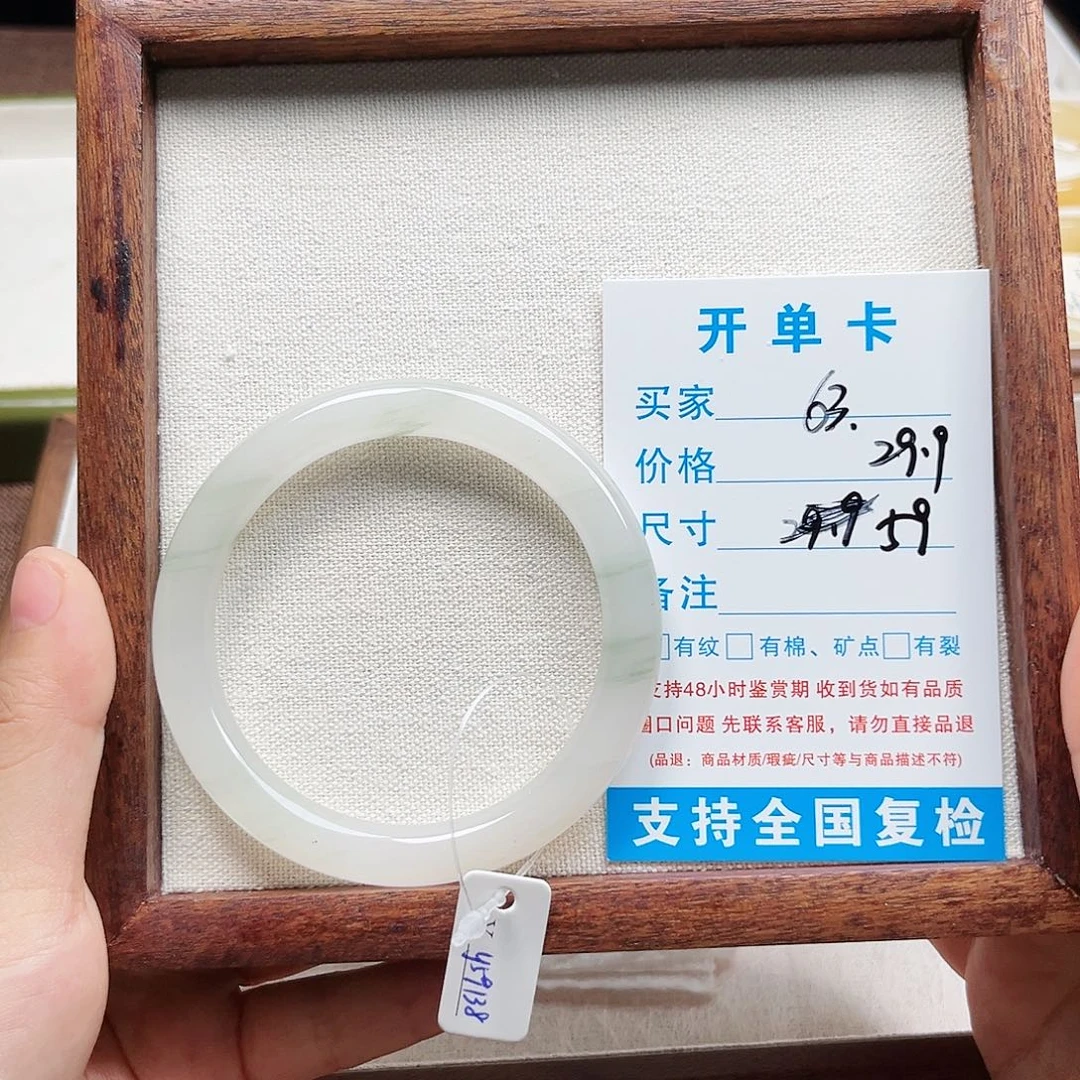 开单卡
买家 63.
价格 29.9
尺寸 59
备注
有纹 有棉、矿点 有裂
支持48小时鉴赏期 收到货如有品质
圈口问题 先联系客服，请勿直接品退
(品退：商品材质/瑕疵/尺寸等与商品描述不符)
支持全国复检
459138